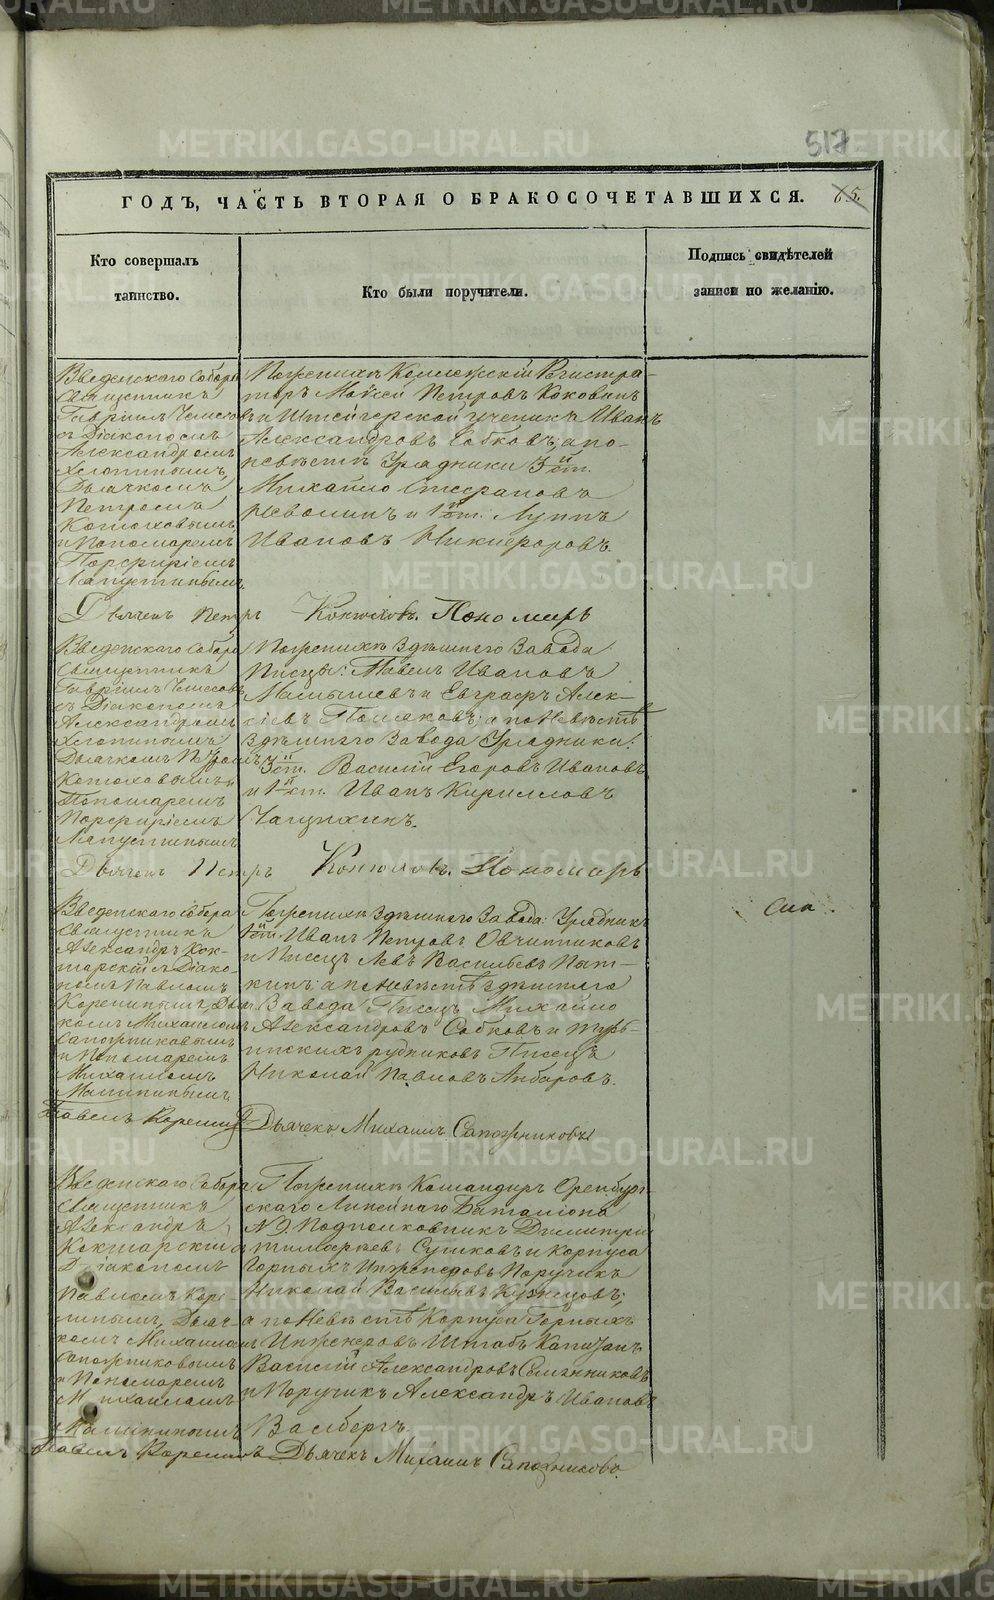 517
ГОДЪ, ЧАСТЬ ВТОРАЯ О БРАКОСОЧЕТАВШИХСЯ.
65.
Кто совершалъ
таинство.
Кто были поручители.
Подпись свидѣтелей
записи по желанію.
Введенскаго Собора
Священникъ
Гавріилъ
съ Діакономъ
Александромъ
Хлопинымъ,
Дьячкомъ
Петромъ
Конюховымъ
и Пономаремъ
Порфиріемъ
Лапустинымъ
По женихѣ Коллежскій Регистра-
торъ Моисей Петровъ Коковинъ
и Штейгерской ученикъ Иванъ
Александровъ Собковъ; а по
невѣстѣ Урядники 3й ст.
Михайло Стефановъ
Неволинъ и 1й ст. Луппъ
Ивановъ Никифоровъ.
Дьячекъ Петръ Конюховъ. Пономарь
Введенскаго Собора
Священникъ
Гавріилъ
съ Діакономъ
Александромъ
Хлопинымъ
Дьячкомъ Петромъ
Конюховымъ и
Пономаремъ
Порфиріемъ
Лапустинымъ
По женихѣ здѣшняго Завода
Писцы: Павелъ Ивановъ
Малышевъ и Евграфъ Алек-
сіевъ Поляковъ; а по Невѣстѣ
здѣшняго Завода Урядники:
3й ст. Василій Егоровъ Ивановъ
и 1й ст. Иванъ Кирилловъ
Чащихинъ.
Дьячекъ Петръ Конюховъ. Пономарь
Введенскаго Собора
Священникъ
Александръ Кок-
шарскій съ Діако-
номъ Павломъ
Корелинымъ, Дьяч-
комъ Михаиломъ
Сапожниковымъ
и Пономаремъ
Михаиломъ
Малининымъ
По женихѣ здѣшняго Завода: Урядникъ
1й ст. Иванъ Петровъ Овчинниковъ
и Писецъ Левъ Васильевъ Пят-
кинъ; а по невѣстѣ здѣшняго
Завода Писецъ Михайло
Александровъ Собковъ и Турь-
инскихъ рудниковъ Писецъ
Николай Павловъ Анбаровъ.
Павелъ Корелинъ Дьячекъ Михаилъ Сапожниковъ
Введенскаго Собора
Священникъ
Александръ
Кокшарскій съ
Діакономъ
Павломъ Коре-
линымъ, Дьяч-
комъ Михаиломъ
Сапожниковымъ
и Пономаремъ
Михаиломъ
Малининымъ
По женихѣ Командиръ Оренбург-
скаго Линейнаго Баталіона
Подполковникъ Димитрій
Тимофеевъ Сушковъ и Корпуса
Горныхъ Инженеровъ Поручикъ
Николай Васильевъ Кузнецовъ;
а по Невѣстѣ Корпуса Горныхъ
Инженеровъ Штабъ Капитанъ
Василій Александровъ Семянниковъ
и Поручикъ Александръ Ивановъ
Валбергъ
Павелъ Корелинъ Дьячекъ Михаилъ Сапожниковъ
METRIKI.GASO-URAL.RU